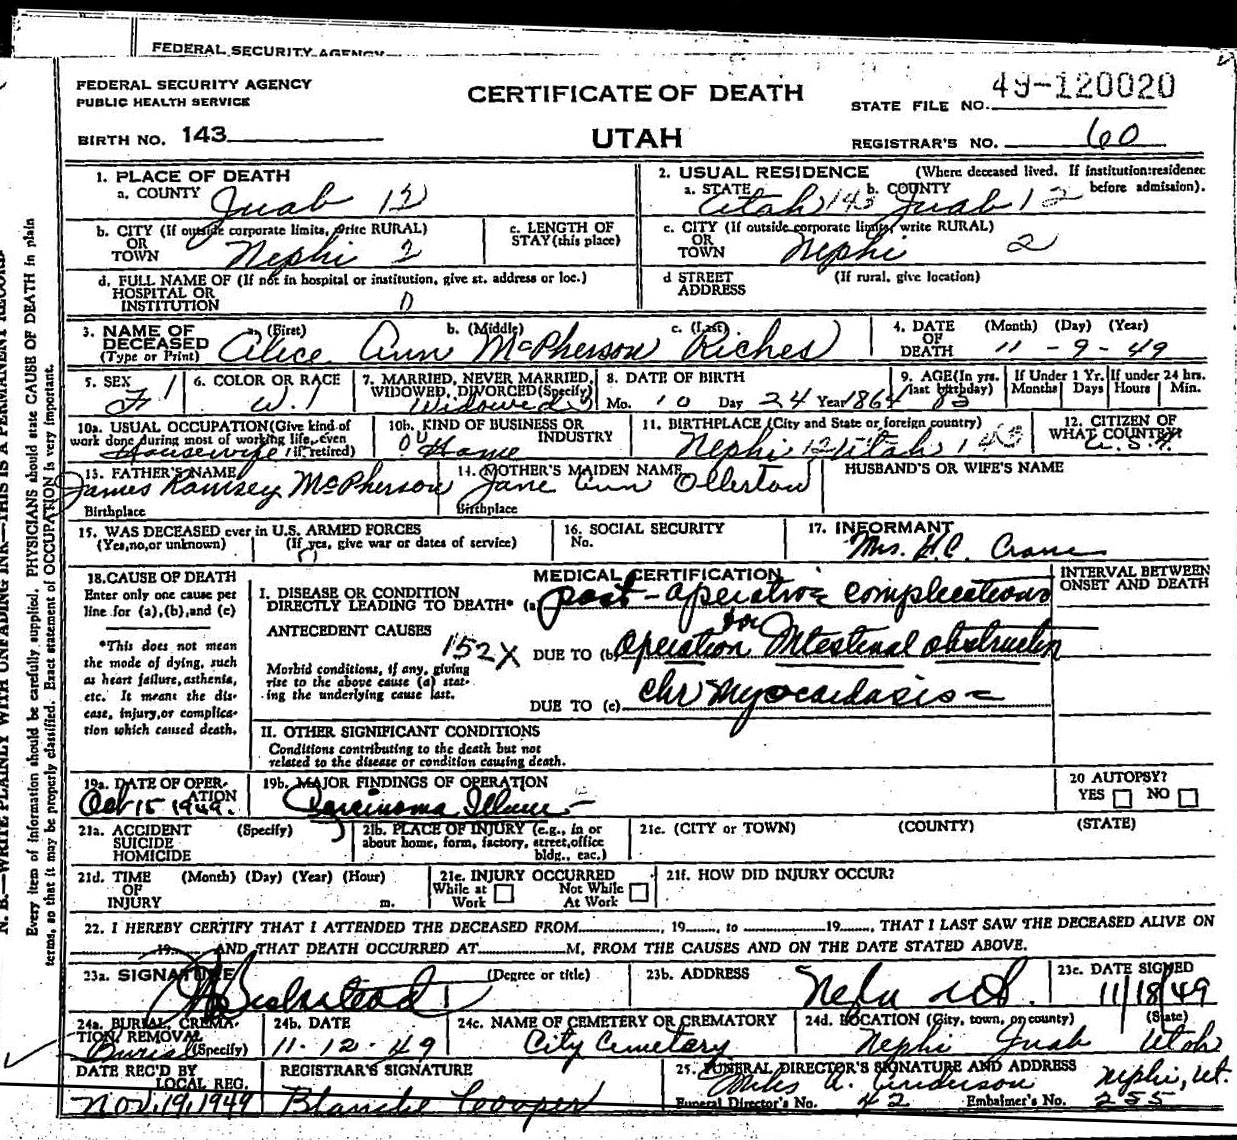 FEDERAL SECURITY AGENCY
FEDERAL SECURITY AGENCY
PUBLIC HEALTH SERVICE
CERTIFICATE OF DEATH
STATE FILE NO. 49-120020
BIRTH NO. 143
UTAH
REGISTRAR'S NO. 60
1. PLACE OF DEATH
a. COUNTY Juab 12
2. USUAL RESIDENCE (Where deceased lived. If institution: residence before admission).
a. STATE Utah 143 b. COUNTY Juab 12
b. CITY (If outside corporate limits, write RURAL)
OR
TOWN Nephi 2
c. LENGTH OF
STAY (this place)
c. CITY (If outside corporate limits, write RURAL)
OR
TOWN Nephi 2
d. FULL NAME OF (If not in hospital or institution, give st. address or loc.)
HOSPITAL OR
INSTITUTION 0
d STREET (If rural, give location)
ADDRESS
3. NAME OF DECEASED (Type or Print)
a. (First) b. (Middle) c. (Last)
Alice Ann McPherson Riches
4. DATE OF DEATH (Month) (Day) (Year)
11 - 9 - 49
5. SEX F 1
6. COLOR OR RACE W. 1
7. MARRIED, NEVER MARRIED, WIDOWED, DIVORCED (Specify) Widowed
8. DATE OF BIRTH
Mo. 10 Day 24 Year 1864
9. AGE (In yrs. last birthday) 85
If Under 1 Yr. Months Days
If under 24 hrs. Hours Min.
10a. USUAL OCCUPATION (Give kind of work done during most of working life, even if retired) Housewife
10b. KIND OF BUSINESS OR INDUSTRY Home
11. BIRTHPLACE (City and State or foreign country)
Nephi 12 Utah 143
12. CITIZEN OF WHAT COUNTRY? U.S.A.
13. FATHER'S NAME
James Ramsey McPherson
Birthplace
14. MOTHER'S MAIDEN NAME
Jane Ann Ollerton
Birthplace
HUSBAND'S OR WIFE'S NAME
15. WAS DECEASED ever in U.S. ARMED FORCES
(Yes, no, or unknown) (If yes, give war or dates of service)
16. SOCIAL SECURITY
No.
17. INFORMANT
Mrs. H.C. Crane
18. CAUSE OF DEATH
Enter only one cause per line for (a), (b), and (c)
*This does not mean the mode of dying, such as heart failure, asthenia, etc. It means the disease, injury, or complication which caused death.
MEDICAL CERTIFICATION
INTERVAL BETWEEN ONSET AND DEATH
I. DISEASE OR CONDITION
DIRECTLY LEADING TO DEATH* (a) post-operative complications
for
ANTECEDENT CAUSES
152X
DUE TO (b) Operation Intestinal obstruction
Morbid conditions, if any, giving rise to the above cause (a) stating the underlying cause last.
DUE TO (c) chr myocardosis
II. OTHER SIGNIFICANT CONDITIONS
Conditions contributing to the death but not related to the disease or condition causing death.
19a. DATE OF OPERATION
Oct 15 1949.
19b. MAJOR FINDINGS OF OPERATION
Carcinoma Illium
20 AUTOPSY?
YES NO
21a. ACCIDENT (Specify)
SUICIDE
HOMICIDE
21b. PLACE OF INJURY (e.g., in or about home, form, factory, street, office bldg., eac.)
21c. (CITY or TOWN) (COUNTY) (STATE)
21d. TIME (Month) (Day) (Year) (Hour)
OF
INJURY m.
21e. INJURY OCCURRED
While at Work Not While At Work
21f. HOW DID INJURY OCCUR?
22. I HEREBY CERTIFY THAT I ATTENDED THE DECEASED FROM , 19 , to 19 , THAT I LAST SAW THE DECEASED ALIVE ON
19 AND THAT DEATH OCCURRED AT M, FROM THE CAUSES AND ON THE DATE STATED ABOVE.
23a. SIGNATURE (Degree or title)
23b. ADDRESS
23c. DATE SIGNED
11/18/49
24a. BURIAL, CREMATION, REMOVAL (Specify) Burial
24b. DATE
11-12-49
24c. NAME OF CEMETERY OR CREMATORY
City Cemetary
24d. LOCATION (City, town, or county) (State)
Nephi Juab Utah
DATE REC'D BY LOCAL REG.
Nov. 19, 1949
REGISTRAR'S SIGNATURE
Blanche Cooper
25. FUNERAL DIRECTOR'S SIGNATURE AND ADDRESS
Miles A. Anderson Nephi, Ut.
Funeral Director's No. 42 Embalmer's No. 255
N. B.—WRITE PLAINLY WITH UNFADING INK—THIS IS A PERMANENT RECORD
Every item of information should be carefully supplied. PHYSICIANS should state CAUSE OF DEATH in plain
terms, so that it may be properly classified. Exact statement of OCCUPATION is very important.